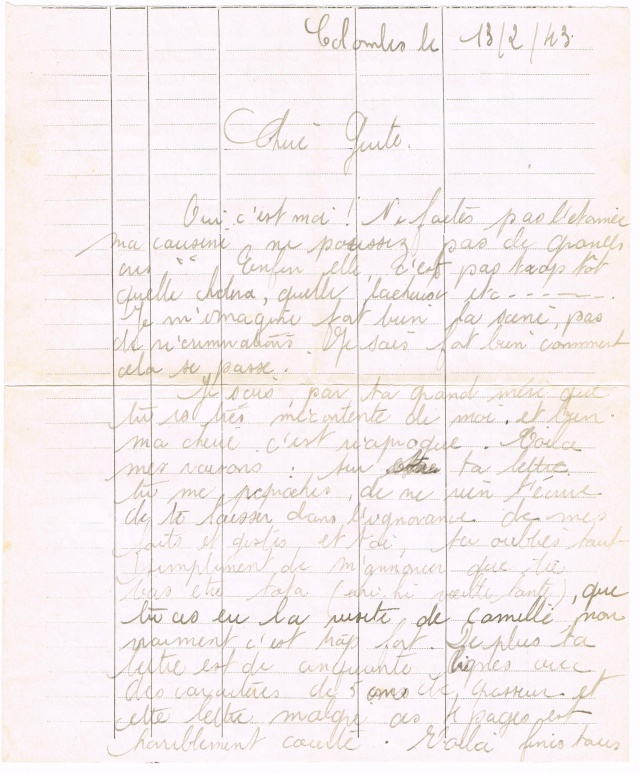 Colombes le 13/2/43.
Cheri Guite.
Oui c'est moi ! Ne faites pas l'etonnée
ma cousine ne poussez pas de grands
cris "" Enfin elle, c'est pas trop tôt
quelle , quelle lacheuse etc -----.
Je m'imagine fort bien la scène, pas
de récriminations. Je sais fort bien comment
cela se passe.
Je sais, par ta grand mère que
tu es très mécontente de moi. et bien
ma chérie c'est réciproque. Voici
mes raisons : sur ta lettre
tu me reproches, de ne rien t'écrire
de te laisser dans l'ignorance de mes
faits et gestes, et toi, tu oublies tout
simplement de m'annoncer que
vas etre tata (ahi hi vieille tante), que
tu as eu la visite de camille, non
vraiment c'est trop fort. De plus ta
lettre est de cinquante lignes avec
des caractères de 5 cms de, chasseur et
cette lettre malgré ces 4 pages est
horriblement courte. Voilà finis tous